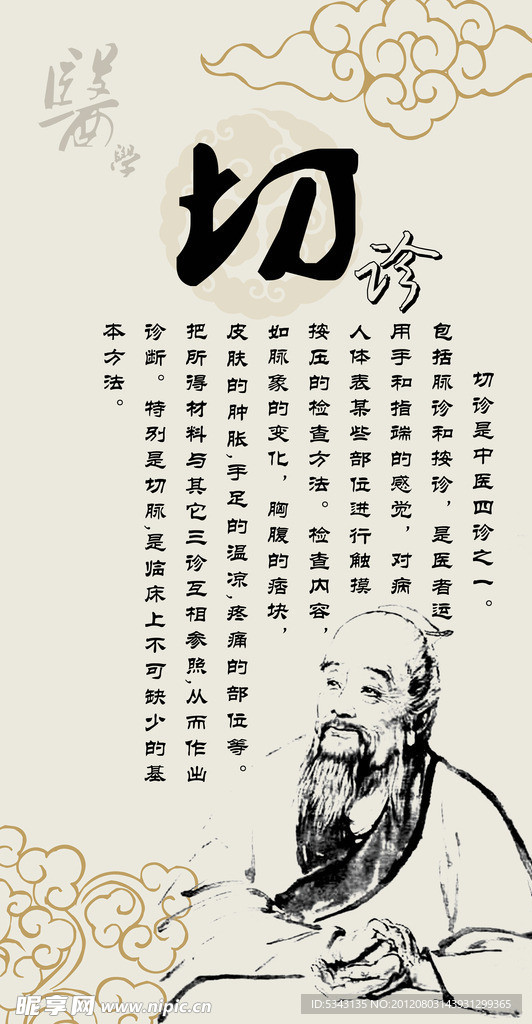 醫
學
切
诊
切诊是中医四诊之一。
包括脉诊和按诊，是医者运
用手和指端的感觉，对病
人体表某些部位进行触摸
按压的检查方法。检查内容，
如脉象的变化，胸腹的痞块，
皮肤的肿胀,手足的温凉,疼痛的部位等。
把所得材料与其它三诊互相参照,从而作出
诊断。特别是切脉,是临床上不可缺少的基
本方法。
昵享网 www.nipic.cn
ID:5343135 NO:20120803143931299365